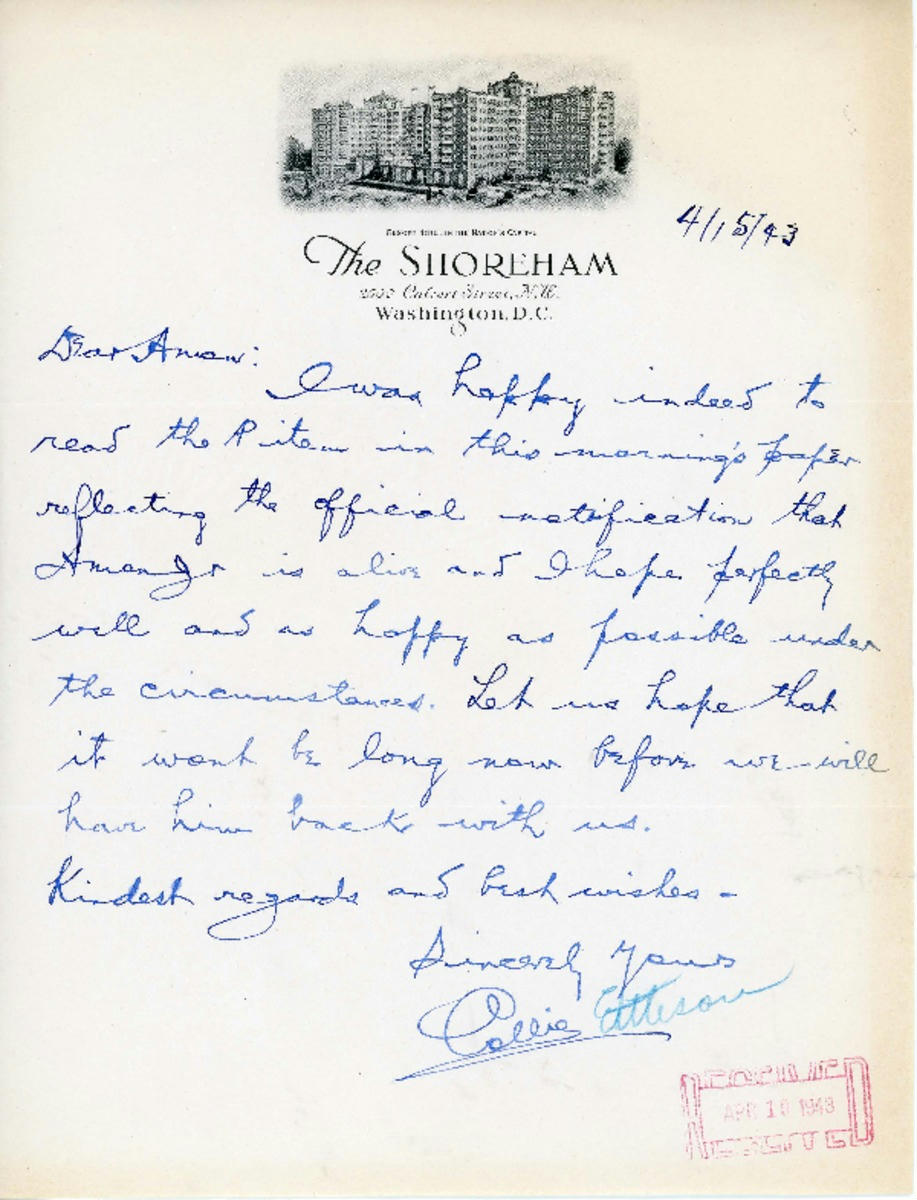 4/15/43
The SHOREHAM
Calvert Street, N.W.
Washington, D.C.
Dear Amon:
I was happy indeed to
read the item in this morning's paper
reflecting the official notification that
Amon Jr is alive and I hope perfectly
well and as happy as possible under
the circumstances. Let us hope that
it wont be long now before we will
have him back with us.
Kindest regards and best wishes -
Sincerely Yours
Collie
APR 1943